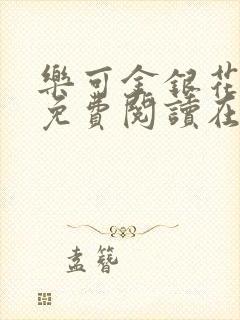 樂可金銀花
免費閱讀在
盍簪